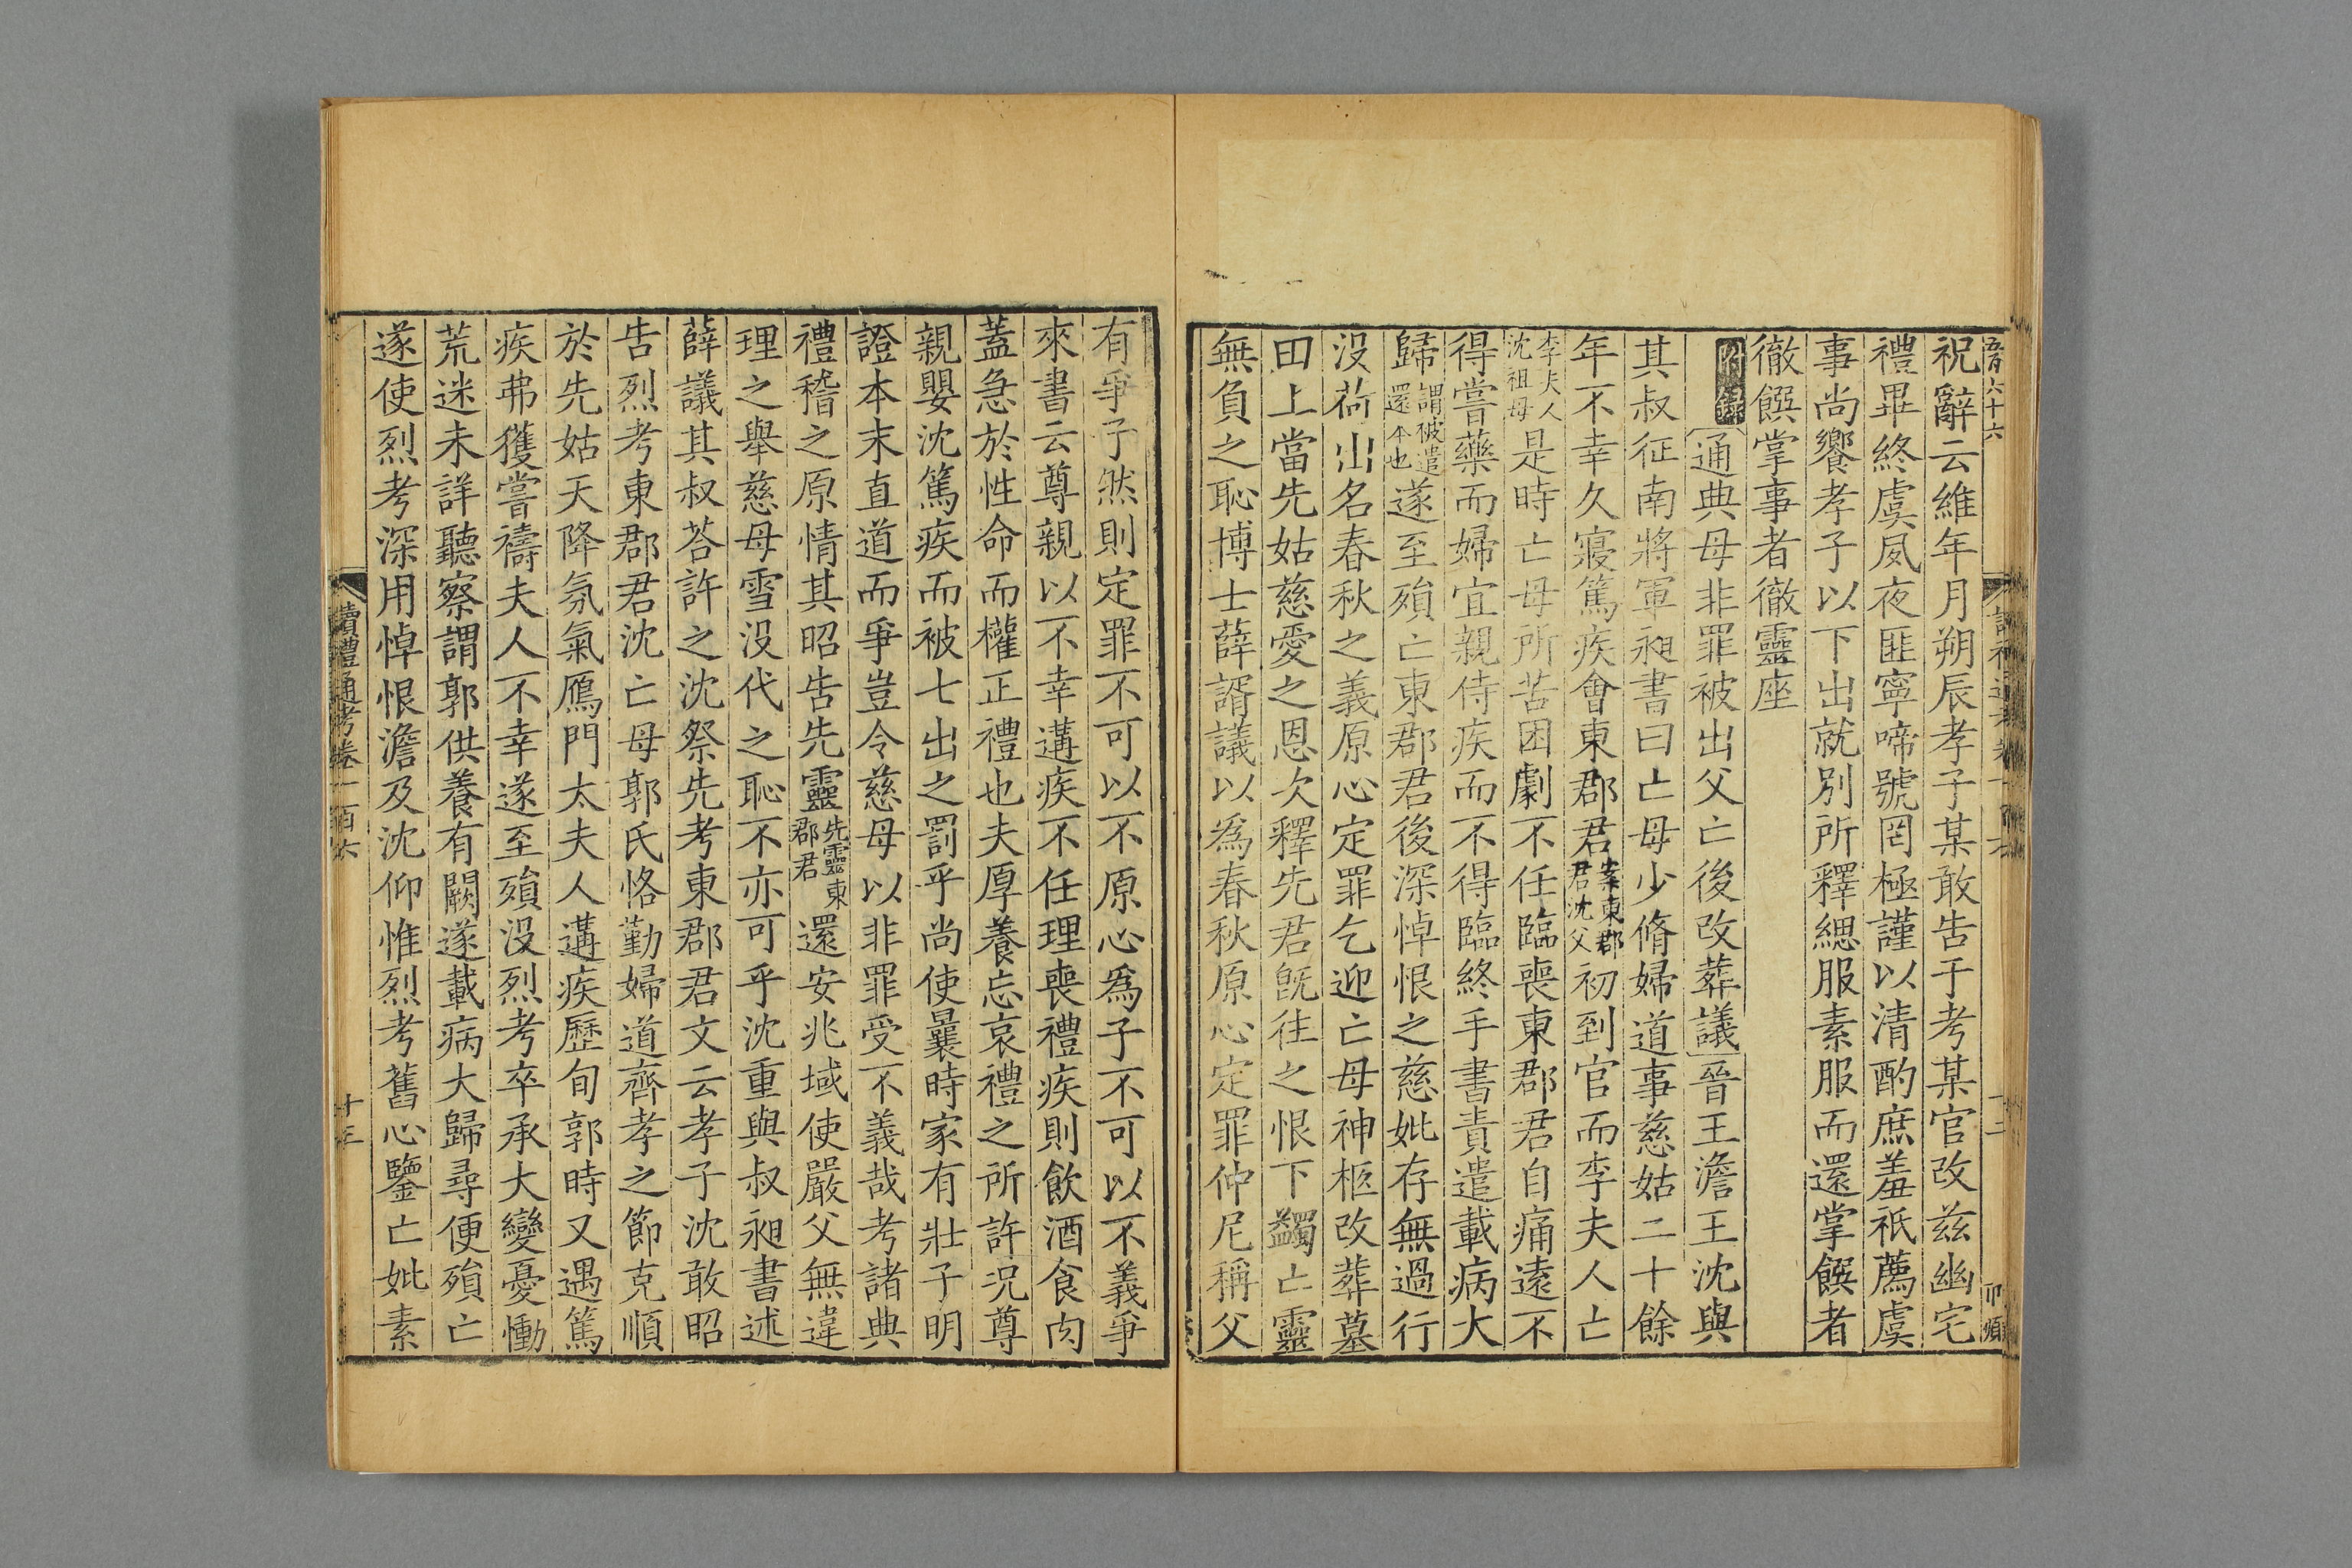 祝辭云維年月朔辰孝子某敢告于考某官改茲幽宅
禮畢終虞夙夜匪寧啼號罔極謹以清酌庶羞祗薦虞
事尚饗孝子以下出就別所釋緦服素服而還掌饌者
徹饌掌事者徹靈座
附錄通典母非罪被出父亡後改葬議晉王澹王沈與
其叔征南將軍昶書曰亡母少脩婦道事慈姑二十餘
年不幸久寢篤疾會東郡君案東郡君沈父初到官而李夫人亡
李夫人沈祖母是時亡母所苦困劇不任臨喪東郡君自痛遠不
得嘗藥而婦宜親侍疾而不得臨終手書責遣載病大
歸謂被遣還本也遂至殞亡東郡君後深悼恨之慈妣存無過行
沒荷出名春秋之義原心定罪乞迎亡母神柩改葬墓
田上當先姑慈愛之恩次釋先君旣往之恨下蠲亡靈
無負之恥博士薛諝議以爲春秋原心定罪仲尼稱父
有爭子然則定罪不可以不原心爲子不可以不義爭
來書云尊親以不幸遘疾不任理喪禮疾則飲酒食肉
蓋急於性命而權正禮也夫厚養忘哀禮之所許況尊
親嬰沈篤疾而被七出之罰乎尚使曩時家有壯子明
證本末直道而爭豈令慈母以非罪受不義哉考諸典
禮稽之原情其昭告先靈先靈東郡君還安兆域使嚴父無違
理之舉慈母雪沒代之恥不亦可乎沈重與叔昶書述
薛議其叔荅許之沈祭先考東郡君文云孝子沈敢昭
告烈考東郡君沈亡母郭氏恪勤婦道齊孝之節克順
於先姑天降氛氣鴈門太夫人遘疾歷旬郭時又遇篤
疾弗獲嘗禱夫人不幸遂至殞沒烈考卒承大變憂慟
荒迷未詳聽察謂郭供養有闕遂載病大歸尋便殞亡
遂使烈考深用悼恨澹及沈仰惟烈考舊心鑒亡妣素
讀禮通考卷一百六
十三